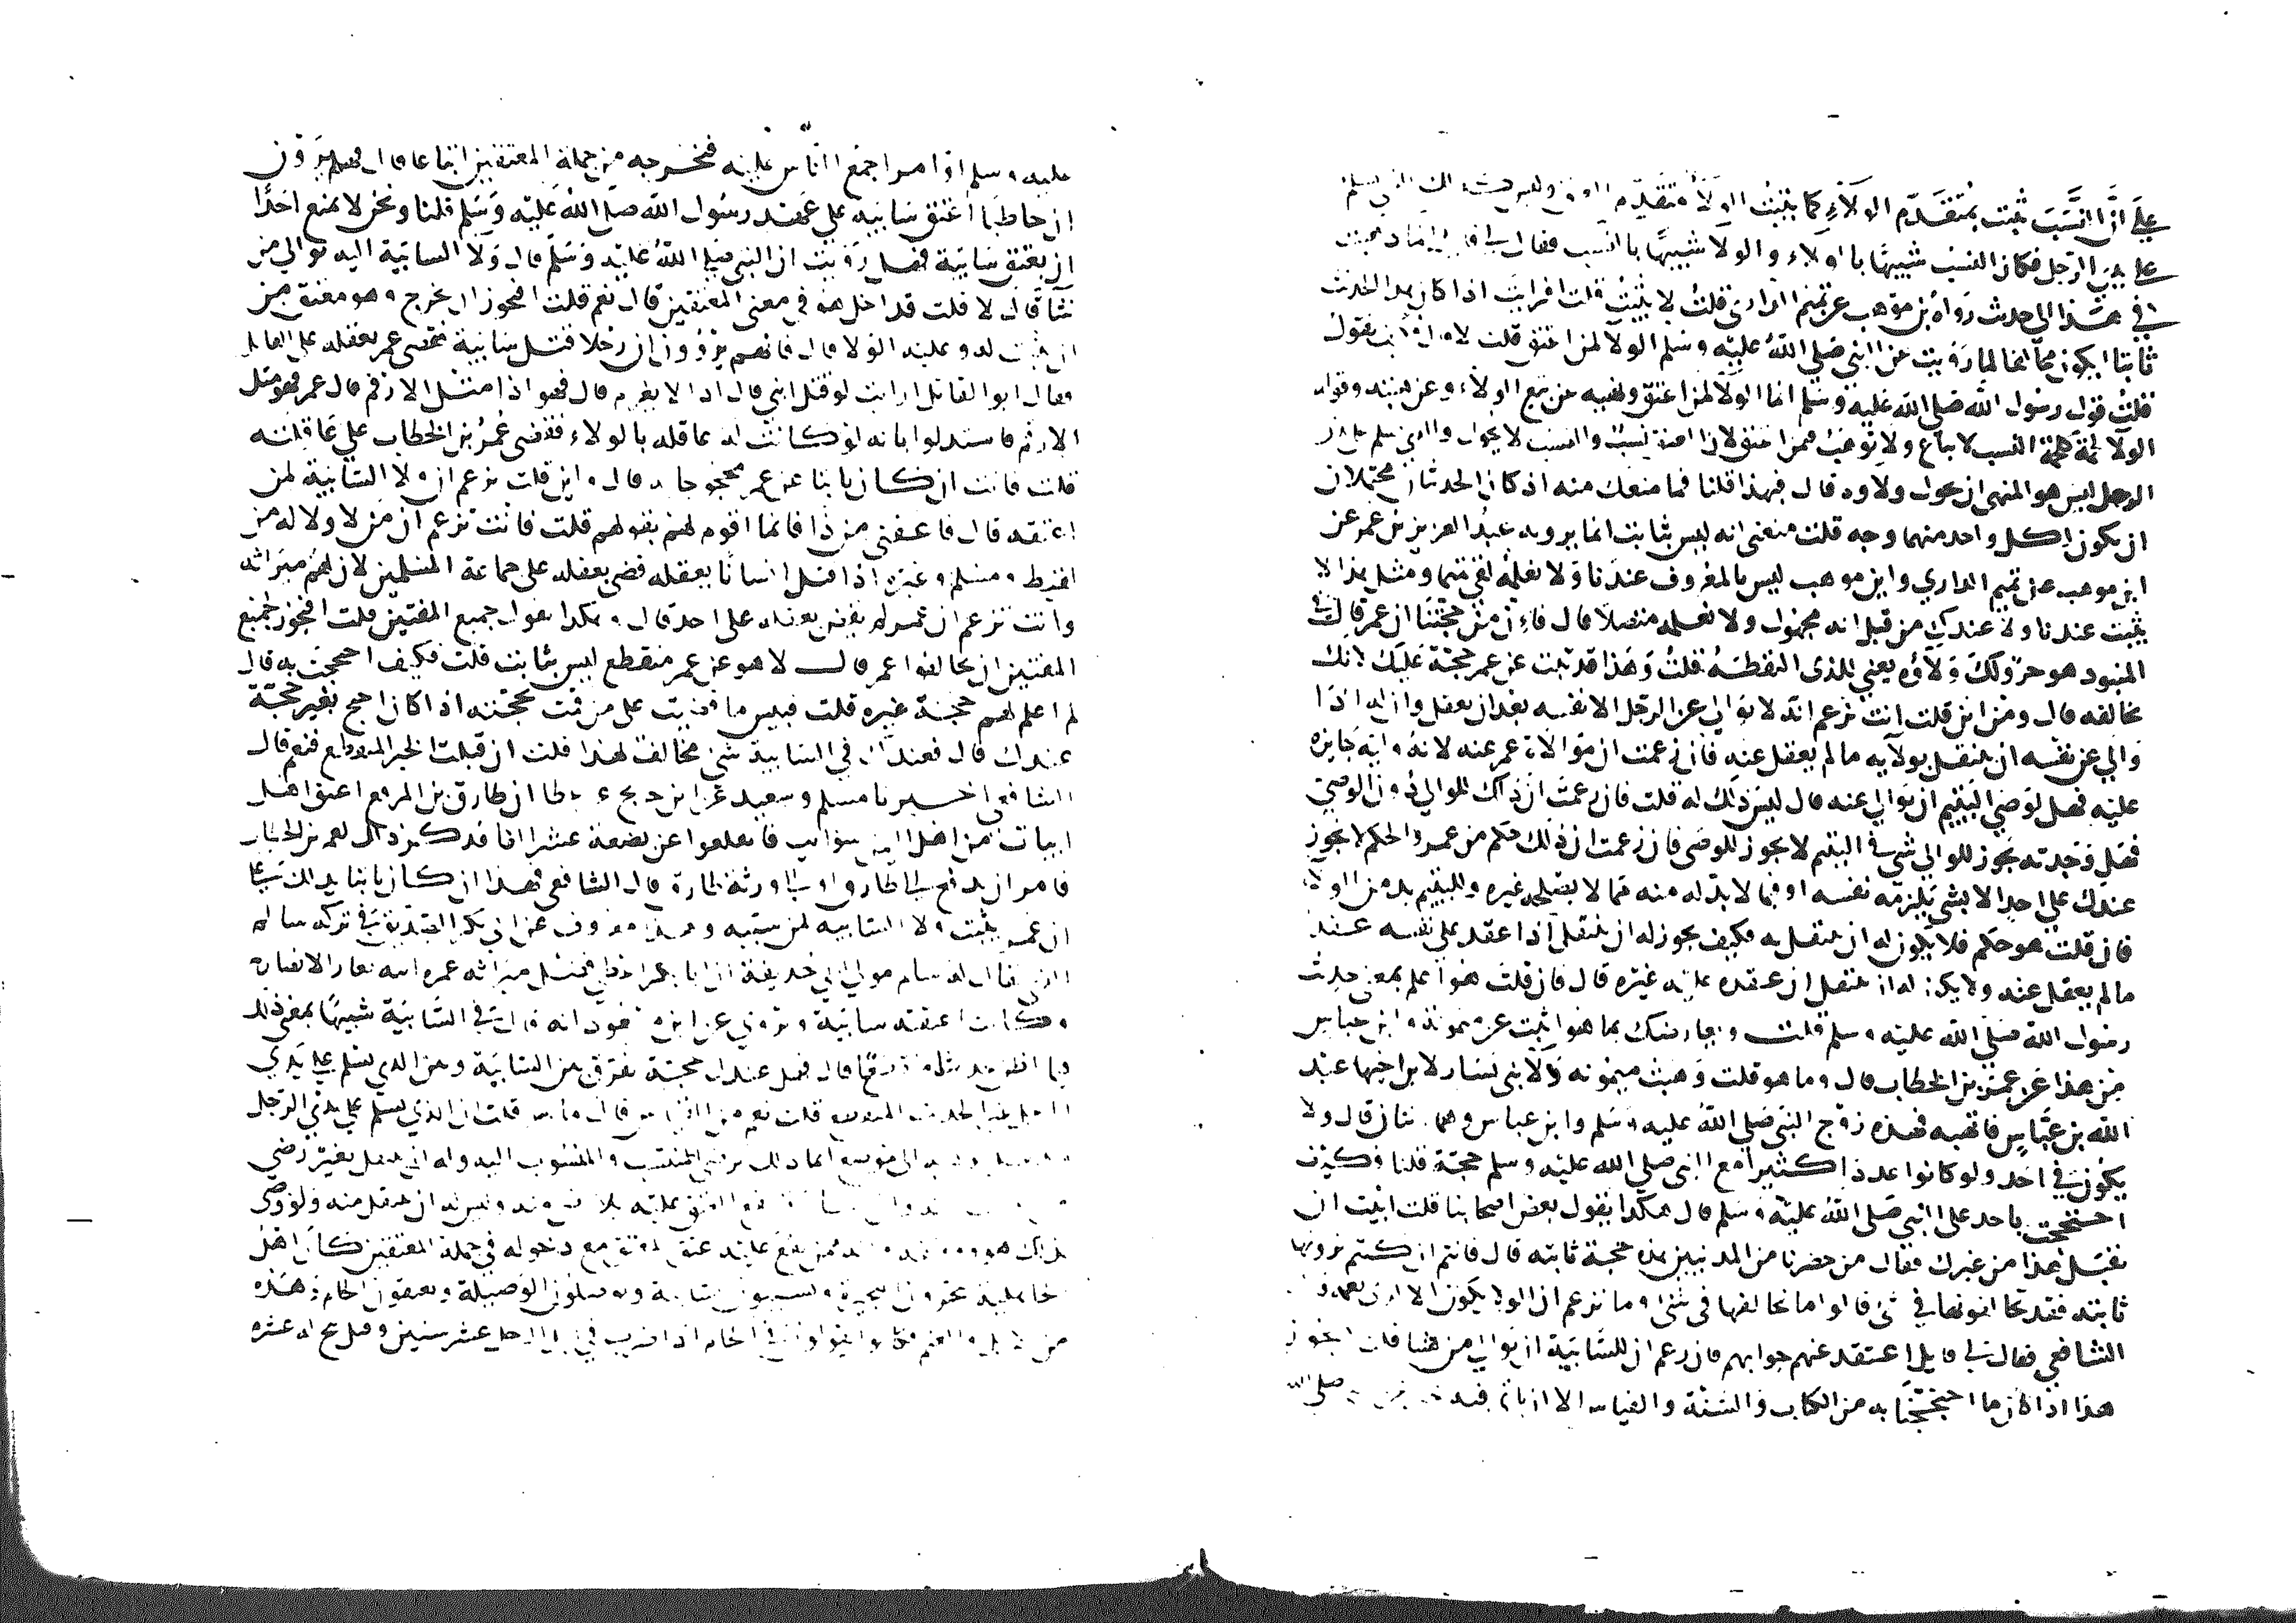 على ان النسب ثبت بمتقدم الولاء كما يثبت الولا متقدم
على يدي الرجل فكان النسب شبيها بالولاء والولا شبيها بالنسب فقال لي قائل انما ذهبت
في هذا الى حديث رواه بن موهب عن تميم الداري قلت لا يثبت قلت افرايت اذا كان هذا الحديث
ثابتا ايكون مخالفا لما رويت عن النبي صلى الله عليه وسلم الولا لمن اعتق قلت لا قال فكيف تقول
فقلت قول رسول الله صلى الله عليه وسلم انما الولا لمن اعتق ونهيه عن بيع الولاء وعن هبته وقوله
الولا لحمة كلحمة النسب لا يباع ولا يوهب فمن اعتق لان العتق نسب والنسب لا يحول والذي يسلم على يدي
الرجل ليس هو المنهى ان يحول ولاوه قال فبهذا قلنا فما منعك منه اذ كان الحديثان محتملان
ان يكون لكل واحد منهما وجه قلت منعني انه ليس بثابت انما يرويه عبد العزيز بن عمر عن
ابن موهب عن تميم الداري وابن موهب ليس بالمعروف عندنا ولا نعلمه لقي تميما ومثل هذا لا
يثبت عندنا ولا عندك من قبل انه مجهول ولا نعلمه متصلا قال فان من حجتنا ان عمر قال في
المنبوذ هو حر ولك ولاوه يعني للذي التقطه قلت وهذا قد يثبت عن عمر حجة عليك لانك
تخالفه قال ومن اين قلت انت تزعم انه لا يوالي عن الرجل الا نفسه بعد ان يعقل وان له اذا
والي عن نفسه ان ينتقل بولايه مالم يعقل عنه فان زعمت ان موالاة عمر عنه لانه وليه جايزه
عليه فهل لوصي اليتيم ان يوالي عنه قال ليس ذلك له قلت فان زعمت ان ذلك للوالي دون الوصي
فهل وجدته يجوز للوالي شي في اليتيم لا يجوز للوصي فان زعمت ان ذلك حكم من عمر والحكم لا يجوز
عندك على احد الا بشي يلزمه نفسه او فيما لا بد له منه مما لا يصلحه غيره ولليتيم بد من الولاء
فان قلت هو حكم فلا يكون له ان ينتقل به فكيف يجوز له ان ينتقل اذا عقد على نفسه عقد
مالم يعقل عنه ولا يكون له ان ينتقل ان عقده عليه غيره قال فان قلت هو اعلم بمعنى حديث
رسول الله صلى الله عليه وسلم قلت ويعارضك بما هو اثبت عن ميمونة وابن عباس
من هذا عن عمر بن الخطاب قال وما هو قلت وهبت ميمونه ولا بني يسار لابن اختها عبد
الله بن عباس فاتهبه فهذه زوج النبي صلى الله عليه وسلم وابن عباس وهما اثنان قال ولا
يكون في احد ولو كانوا عددا كثيرا مع النبي صلى الله عليه وسلم حجة قلنا فكيف
احتججت باحد على النبي صلى الله عليه وسلم قال هكذا يقول بعض اصحابنا قلت ابيت ان
تقبل هذا من غيرك فقال من حضرنا من المدنيين هذه حجة ثابته قال فانتم ان كنتم ترونها
ثابته فقد تخالفونها في شي قالوا ما نخالفها في شي وما نزعم ان الولا يكون الا لذي نعمة
الشافعي فقال لي قايل اعتقد عنهم جوابهم فازعم ان للسايبة ان يوالي من شا قلت لا يجوز
هذا اذا كان ما احتججنا به من الكتاب والسنة والقياس الا ان ياتي فيه خبر عن النبي صلى الله
عليه وسلم او امر اجمع الناس عليه فنخرجه من جملة المعتقين اتباعا قال فهم يروون
ان حاطبا اعتق سايبه على عهد رسول الله صلى الله عليه وسلم قلنا ونحن لا نمنع احدا
ان يعتق سايبة فهل رويت ان النبي صلى الله عليه وسلم قال ولا السايبة اليه يوالي من
شا قال لا قلت قداخل هو في معنى المعتقين قال نعم قلت افيجوز ان يخرج وهو معتق من
ان يثبت له وعليه الولا قال فانهم يروون ان رجلا قتل سايبة فقضى عمر بعقله على القاتل
فقال ابو القاتل ارايت لو قتل ابني قال اذا لا يغرم قال فهو اذا مثل الارقم قال عمر فهو مثل
الارقم فاستدلوا بانه لو كانت له عاقله بالولاء فقضى عمر بن الخطاب على عاقلته
قلت فانت ان كان ثابتا عن عمر محجوج به قال واين قلت تزعم ان ولا السايبة لمن
اعتقه قال فاعفني من ذا فانما اقوم لهم بقولهم قلت فانت تزعم ان من لا ولا له من
لقيط ومسلم وغيره اذا قتل انسانا يعقله قضى بعقله على جماعة المسلمين لان لهم ميراثه
وانت تزعم ان عمر لم يقض بعقله على احد قال وهكذا يقول جميع المفتين قلت افيجوز لجميع
المفتين ان يخالفوا عمر قال لا هو عن عمر منقطع ليس بثابت قلت فكيف احتججت به قال
لم اعلم لهم حجة غيره قلت فبيس ما قضيت على من قمت بحجته اذا كان احتج بغير حجة
عندك قال فعندك في السايبة شي مخالف لهذا قلت ان قبلت الخبر المنقطع فنعم قال
الشافعي اخبرنا مسلم وسعيد عن ابن جريج عن عطا ان طارق بن المرقع اعتق اهل
ابيات من اهل اليمن سوايب فانقلعوا عن بضعة عشر الفا فذكر ذلك لعمر بن الخطاب
فامر ان يدفع الى طارق او الى ورثة طارق قال الشافعي فهذا ان كان ثابتا يدلك على
ان عمر يثبت ولا السايبه لمن سيبه وهذا معروف عن ابي بكر الصديق في تركه سالم
الذي يقال له سالم مولى ابي حذيفة ان ابا بكر اعطى فضل ميراثه عمره ابنه يعار الانصارية
وكانت اعتقته سايبة ويروى عن ابن مسعود انه قال في السايبة شبيها بمعنى ذلك
فيما اظن قال فهل عندك حجة تفرق بين السايبة وبين الذي يسلم على يدي
الرجل غير الحديث المنقطع قلت نعم من القياس قال ما هو قلت ان الذي يسلم على يدي الرجل
والمنسوب اليه وله ان ينتقل بغير رضى
المعتق عليه بلا وليس له ان ينتقل منه ولو رضي
بذلك ممن يقع عليه عتق المعتق مع دخوله في جملة المعتقين كان اهل
الجاهلية يبحرون البحيرة ويسيبون السايبة ويوصلون الوصيلة ويعفون الحام وهذه
من الابل والغنم فكانوا يقولون في الحام اذا ضرب في ابل الرجل عشر سنين وقيل نتج له عشره